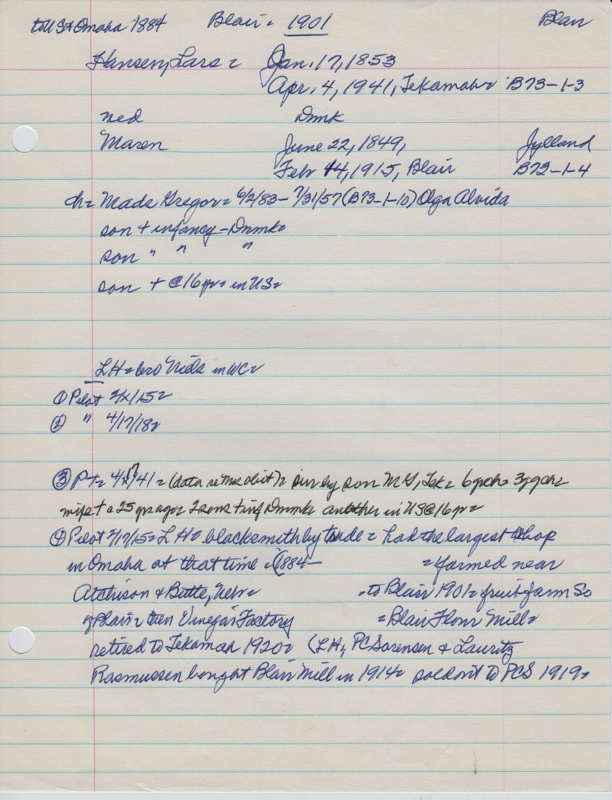 to US + Omaha 1884 Blair = 1901 Blair
Hansen, Lars = Jan. 17, 1853
Apr. 4, 1941, Tekamah = B73-1-3
med Dmk
Maren June 22, 1849, Jylland
Febr 4, 1915, Blair B72-1-4
ch = Mads Gregor = 6/2/83 - 7/31/57 (B73-1-10) Olga Alvida
son + infancy - Dnmk =
son " " "
son + @ 16 yr = in US =
LH = bro Niels in WC =
① Pilot 2/ /15 =
② " 4/17/18 =
③ PT = 4/17/41 = (data re Mrs obit) = surv by son MG, Tek = 6 gch = 3 ggch =
wife + a 25 yrs ago = 2 sons + inf Dnmk = another in US @ 16 yr =
④ Pilot 2/17/15 = LH = blacksmith by trade = had the largest shop
in Omaha at that time = (1884 = farmed near
Atchison + Butte, Nebr = = to Blair 1901 = fruit farm So
of Blair = then Vinegar Factory = Blair Flour Mill =
retired to Tekamah 1920 = (LH, PC Sorensen + Lauritz
Rasmussen bought Blair Mill in 1914 = sold out to PCS 1919 =